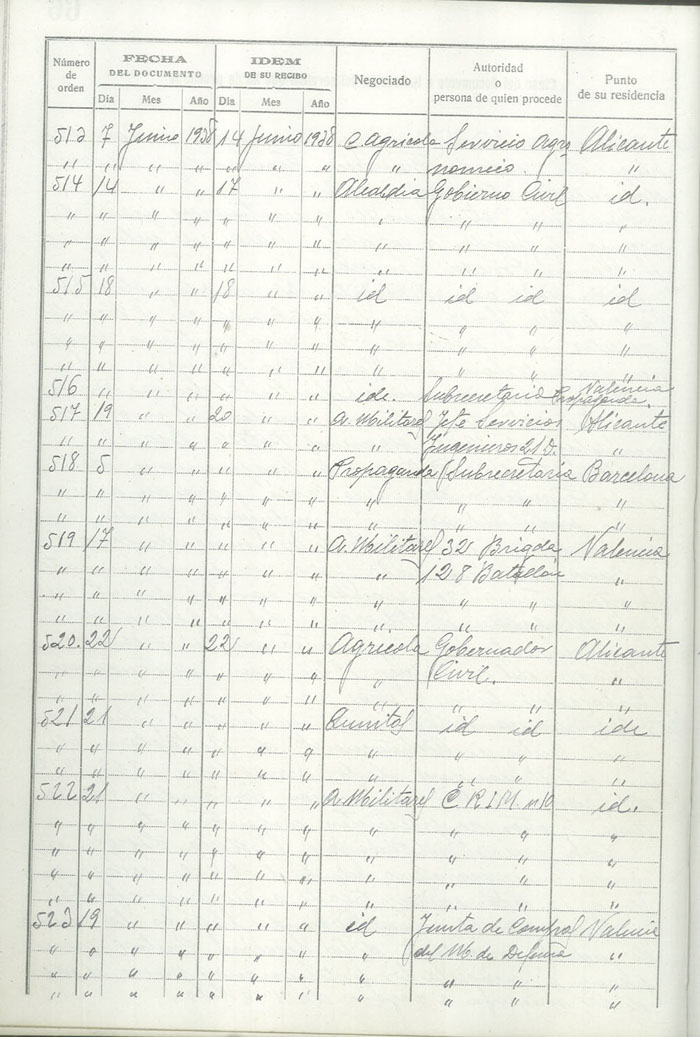 Número de orden | FECHA DEL DOCUMENTO | IDEM DE SU RECIBO | Negociado | Autoridad o persona de quien procede | Punto de su residencia
Día | Mes | Año | Día | Mes | Año
513 7 Junio 1938 14 Junio 1938 C Agrícola Servicio Agro Alicante
" " " " " " " " nomico. "
514 14 " " 17 " " Alcaldia Gobierno Civil id.
" " " " " " " " " " "
" " " " " " " " " " "
" " " " " " " " " " "
515 18 " " 18 " " id id id id
" " " " " " " " " " "
" " " " " " " " " " "
" " " " " " " " " " "
516 " " " " " " id. Subsecretaria Propaganda. Valencia
517 19 " " 20 " " A. Militares Jefe Servicios Alicante
" " " " " " " " Ingenieros "
518 5 " " " " " Propaganda Subsecretaria Barcelona
" " " " " " " " " " "
" " " " " " " " " " "
519 17 " " " " " A. Militares 32 Brigda Valencia
" " " " " " " " 128 Batallón "
" " " " " " " " " " "
" " " " " " " " " " "
520. 22 " " 22 " " Agrícola Gobernador Alicante
" " " " " " " " Civil. "
" " " " " " " " " " "
521 21 " " " " " id id id
" " " " " " " " " " "
" " " " " " " " " " "
522 21 " " " " " A. Militares C R I M nº 10 id.
" " " " " " " " " " "
" " " " " " " " " " "
" " " " " " " " " " "
" " " " " " " " " " "
523 19 " " " " " id Junta de Control Valencia
" " " " " " " " del M. de Defensa "
" " " " " " " " " " "
" " " " " " " " " " "